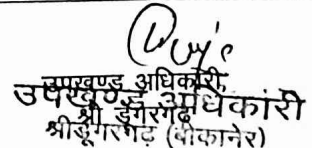 उपखण्ड अधिकारी,
उपखण्ड अधिकारी
श्री डूंगरगढ़
श्रीडूंगरगढ़ (बीकानेर)